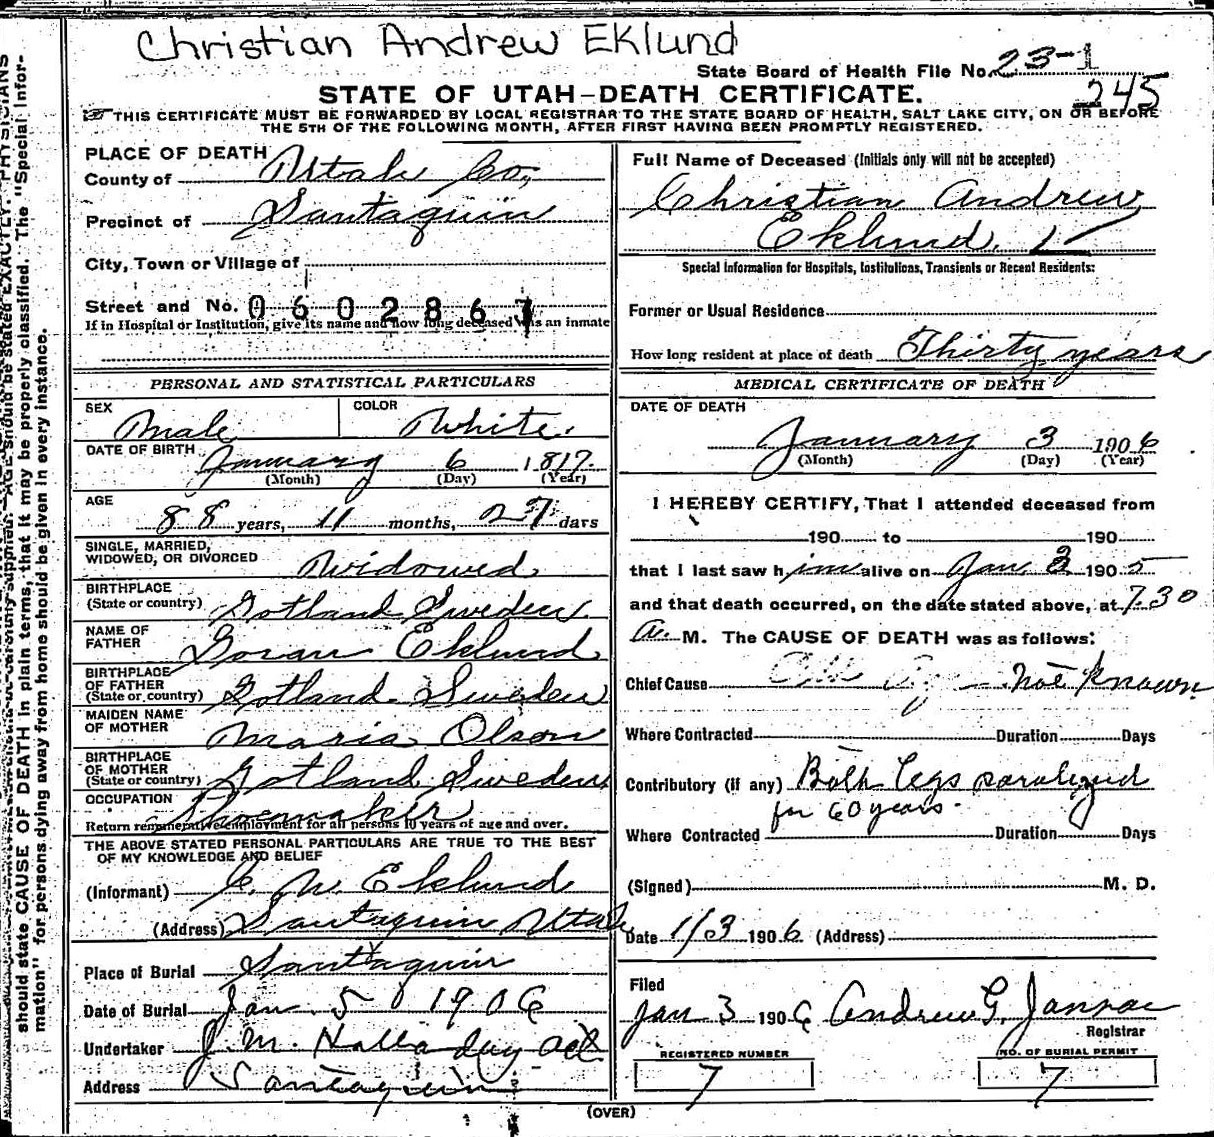 Christian Andrew Eklund
State Board of Health File No. 23-1
245
STATE OF UTAH-DEATH CERTIFICATE.
THIS CERTIFICATE MUST BE FORWARDED BY LOCAL REGISTRAR TO THE STATE BOARD OF HEALTH, SALT LAKE CITY, ON OR BEFORE
THE 5TH OF THE FOLLOWING MONTH, AFTER FIRST HAVING BEEN PROMPTLY REGISTERED.
PLACE OF DEATH
County of Utah Co,
Precinct of Santaquin
City, Town or Village of
Street and No. 0602867
If in Hospital or Institution, give its name and how long deceased was an inmate
PERSONAL AND STATISTICAL PARTICULARS
SEX Male COLOR White.
DATE OF BIRTH January 6 1817.
(Month) (Day) (Year)
AGE
88 years, 11 months, 27 days
SINGLE, MARRIED,
WIDOWED, OR DIVORCED Widowed
BIRTHPLACE
(State or country) Gotland Sweden
NAME OF
FATHER Goran Eklund
BIRTHPLACE
OF FATHER
(State or country) Gotland Sweden
MAIDEN NAME
OF MOTHER Maria Olson
BIRTHPLACE
OF MOTHER
(State or country) Gotland Sweden
OCCUPATION Shoemaker
Return remunerative employment for all persons 10 years of age and over.
THE ABOVE STATED PERSONAL PARTICULARS ARE TRUE TO THE BEST
OF MY KNOWLEDGE AND BELIEF
(Informant) C. M. Eklund
(Address) Santaquin Utah
Place of Burial Santaquin
Date of Burial Jan. 5 1906
Undertaker J. M. Halladay act
Address Santaquin
Full Name of Deceased (Initials only will not be accepted)
Christian Andrew
Eklund.
Special Information for Hospitals, Institutions, Transients or Recent Residents:
Former or Usual Residence
How long resident at place of death Thirty years
MEDICAL CERTIFICATE OF DEATH
DATE OF DEATH
January 3 1906
(Month) (Day) (Year)
I HEREBY CERTIFY, That I attended deceased from
190 to 190
that I last saw him alive on Jan 3 1905
and that death occurred, on the date stated above, at 7.30
a. M. The CAUSE OF DEATH was as follows:
Chief Cause Old Age not known
Where Contracted Duration Days
Contributory (if any) Both legs paralized
for 60 years.
Where Contracted Duration Days
(Signed) M. D.
Date 1/3 1906 (Address)
Filed
Jan 3 1906 Andrew G. 
Registrar
REGISTERED NUMBER
7
NO. OF BURIAL PERMIT
7
(OVER)
should state CAUSE OF DEATH in plain terms, that it may be properly classified. The "Special Infor-
mation" for persons dying away from home should be given in every instance.